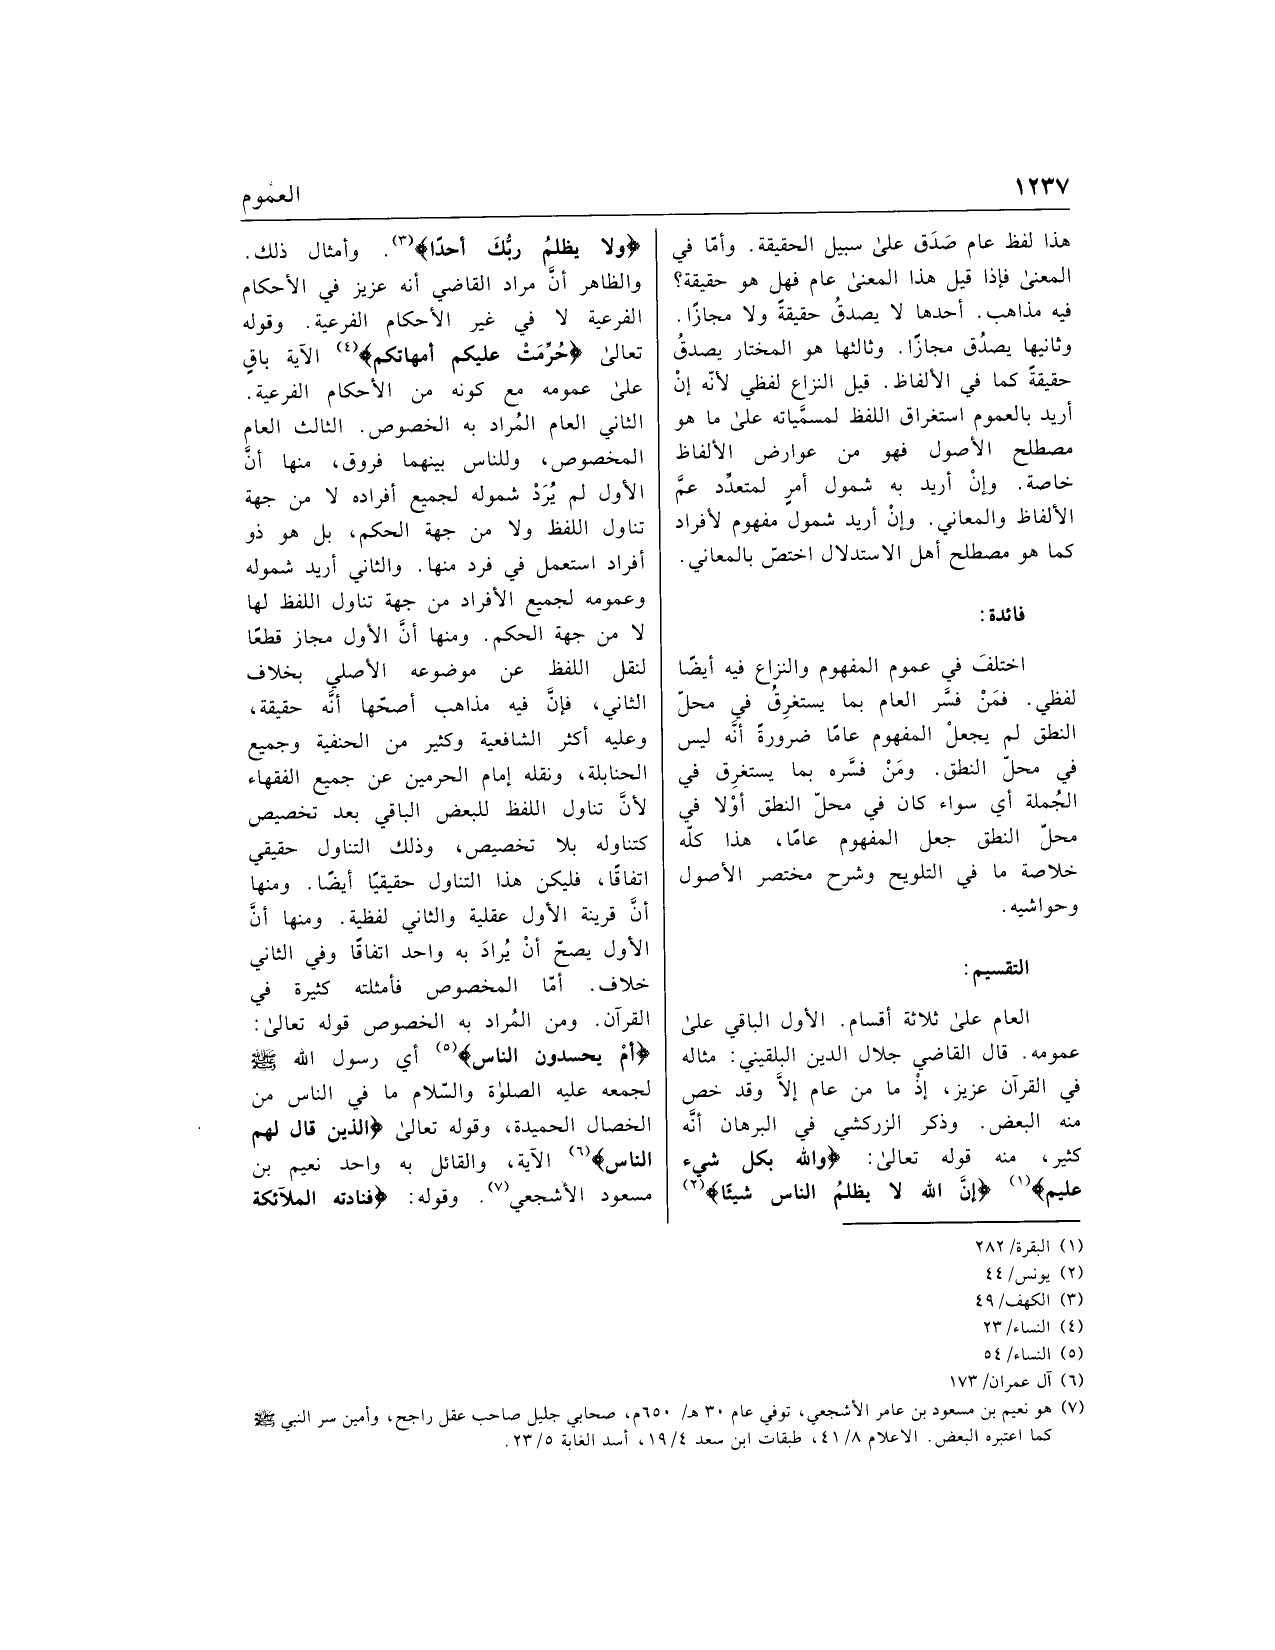 ١٢٣٧
العموم
هذا لفظ عام صَدَق علىٰ سبيل الحقيقة. وأمّا في
المعنىٰ فإذا قيل هذا المعنىٰ عام فهل هو حقيقة؟
فيه مذاهب. أحدها لا يصدقُ حقيقةً ولا مجازًا.
وثانيها يصدُق مجازًا. وثالثها هو المختار يصدقُ
حقيقةً كما في الألفاظ. قيل النزاع لفظي لأنّه إنْ
أريد بالعموم استغراق اللفظ لمسمَّياته علىٰ ما هو
مصطلح الأصول فهو من عوارض الألفاظ
خاصة. وإنْ أريد به شمول أمرٍ لمتعدِّد عمَّ
الألفاظ والمعاني. وإنْ أريد شمول مفهوم لأفراد
كما هو مصطلح أهل الاستدلال اختصّ بالمعاني.
فائدة:
اختلفَ في عموم المفهوم والنزاع فيه أيضًا
لفظي. فمَنْ فسَّر العام بما يستغرِقُ في محلّ
النطق لم يجعلْ المفهوم عامًا ضرورةً أنَّه ليس
في محلّ النطق. ومَنْ فسَّره بما يستغرِق في
الجُملة أي سواء كان في محلّ النطق أوْلا في
محلّ النطق جعل المفهوم عامًا، هذا كلّه
خلاصة ما في التلويح وشرح مختصر الأصول
وحواشيه.
التقسيم:
العام علىٰ ثلاثة أقسام. الأول الباقي علىٰ
عمومه. قال القاضي جلال الدين البلقيني: مثاله
في القرآن عزيز، إذْ ما من عام إلاَّ وقد خص
منه البعض. وذكر الزركشي في البرهان أنَّه
كثير، منه قوله تعالىٰ: ﴿والله بكل شيء
عليم﴾(١) ﴿إنَّ الله لا يظلمُ الناس شيئًا﴾(٢)
﴿ولا يظلمُ ربُّكَ أحدًا﴾(٣). وأمثال ذلك.
والظاهر أنَّ مراد القاضي أنه عزيز في الأحكام
الفرعية لا في غير الأحكام الفرعية. وقوله
تعالىٰ ﴿حُرِّمَتْ عليكم أمهاتكم﴾(٤) الآية باقٍ
علىٰ عمومه مع كونه من الأحكام الفرعية.
الثاني العام المُراد به الخصوص. الثالث العام
المخصوص، وللناس بينهما فروق، منها أنَّ
الأول لم يُرَدْ شموله لجميع أفراده لا من جهة
تناول اللفظ ولا من جهة الحكم، بل هو ذو
أفراد استعمل في فرد منها. والثاني أريد شموله
وعمومه لجميع الأفراد من جهة تناول اللفظ لها
لا من جهة الحكم. ومنها أنَّ الأول مجاز قطعًا
لنقل اللفظ عن موضوعه الأصلي بخلاف
الثاني، فإنَّ فيه مذاهب أصحّها أنَّه حقيقة،
وعليه أكثر الشافعية وكثير من الحنفية وجميع
الحنابلة، ونقله إمام الحرمين عن جميع الفقهاء
لأنَّ تناول اللفظ للبعض الباقي بعد تخصيص
كتناوله بلا تخصيص، وذلك التناول حقيقي
اتفاقًا، فليكن هذا التناول حقيقيًا أيضًا. ومنها
أنَّ قرينة الأول عقلية والثاني لفظية. ومنها أنَّ
الأول يصحّ أنْ يُرادَ به واحد اتفاقًا وفي الثاني
خلاف. أمّا المخصوص فأمثلته كثيرة في
القرآن. ومن المُراد به الخصوص قوله تعالىٰ:
﴿أمْ يحسدون الناس﴾(٥) أي رسول الله ﷺ
لجمعه عليه الصلوٰة والسّلام ما في الناس من
الخصال الحميدة، وقوله تعالىٰ ﴿الذين قال لهم
الناس﴾(٦) الآية، والقائل به واحد نعيم بن
مسعود الأشجعي(٧). وقوله: ﴿فنادته الملآئكة
(١) البقرة/ ٢٨٢
(٢) يونس/ ٤٤
(٣) الكهف/ ٤٩
(٤) النساء/ ٢٣
(٥) النساء/ ٥٤
(٦) آل عمران/ ١٧٣
(٧) هو نعيم بن مسعود بن عامر الأشجعي، توفي عام ٣٠ هـ/ ٦٥٠م، صحابي جليل صاحب عقل راجح، وأمين سر النبي ﷺ
كما اعتبره البعض. الاعلام ٤١/٨، طبقات ابن سعد ١٩/٤، أسد الغابة ٢٣/٥.